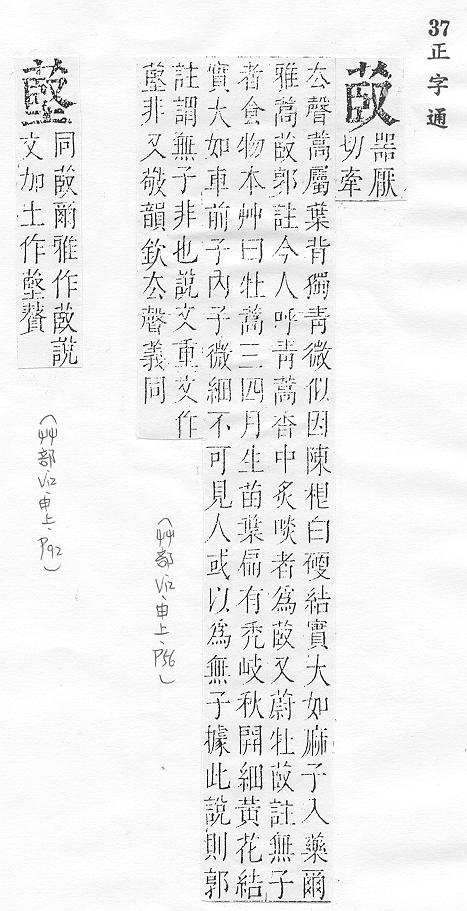 37正字通
菣
器厭
切牽
厺聲蒿屬葉背獨青微似因陳白硬結實大如麻子入藥爾
雅蒿菣郭註今人呼青蒿香中炙啖者為菣又蔚牡菣註無子
者食物本艸曰牡蒿三四月生苗葉偏有禿岐秋開細黃花結
實大如車前子內子微細不可見人或以為無子據此說則郭
註謂無子非也說文重文作
非又敬韻欽厺聲義同
(艸部 V12、申上、P56)
同菣爾雅作菣說
文加土作贅
(艸部 V12、申上、P92)